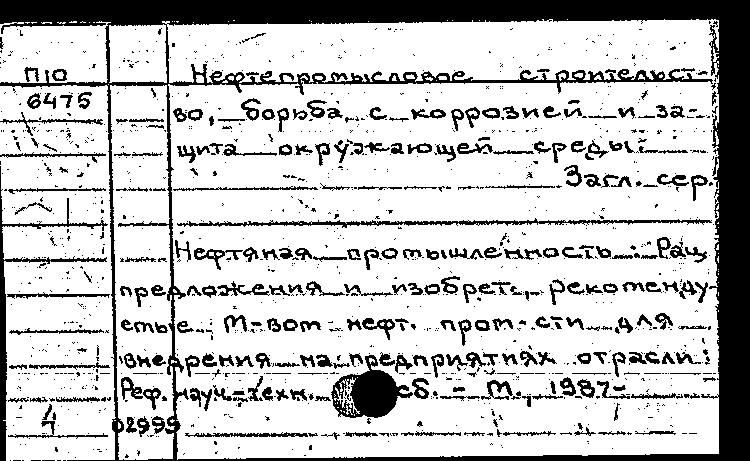 П10 Нефтепромысловое строительст-
6475 во, борьба с коррозией и за-
щита окружающей среды:
Загл. сер.
Нефтяная промышленность: Рац.
предложения и изобрет., рекоменду-
емые М-вом нефт. пром-сти для
внедрения на предприятиях отрасли:
Реф. науч.-техн. сб. - М., 1987-
4 02999